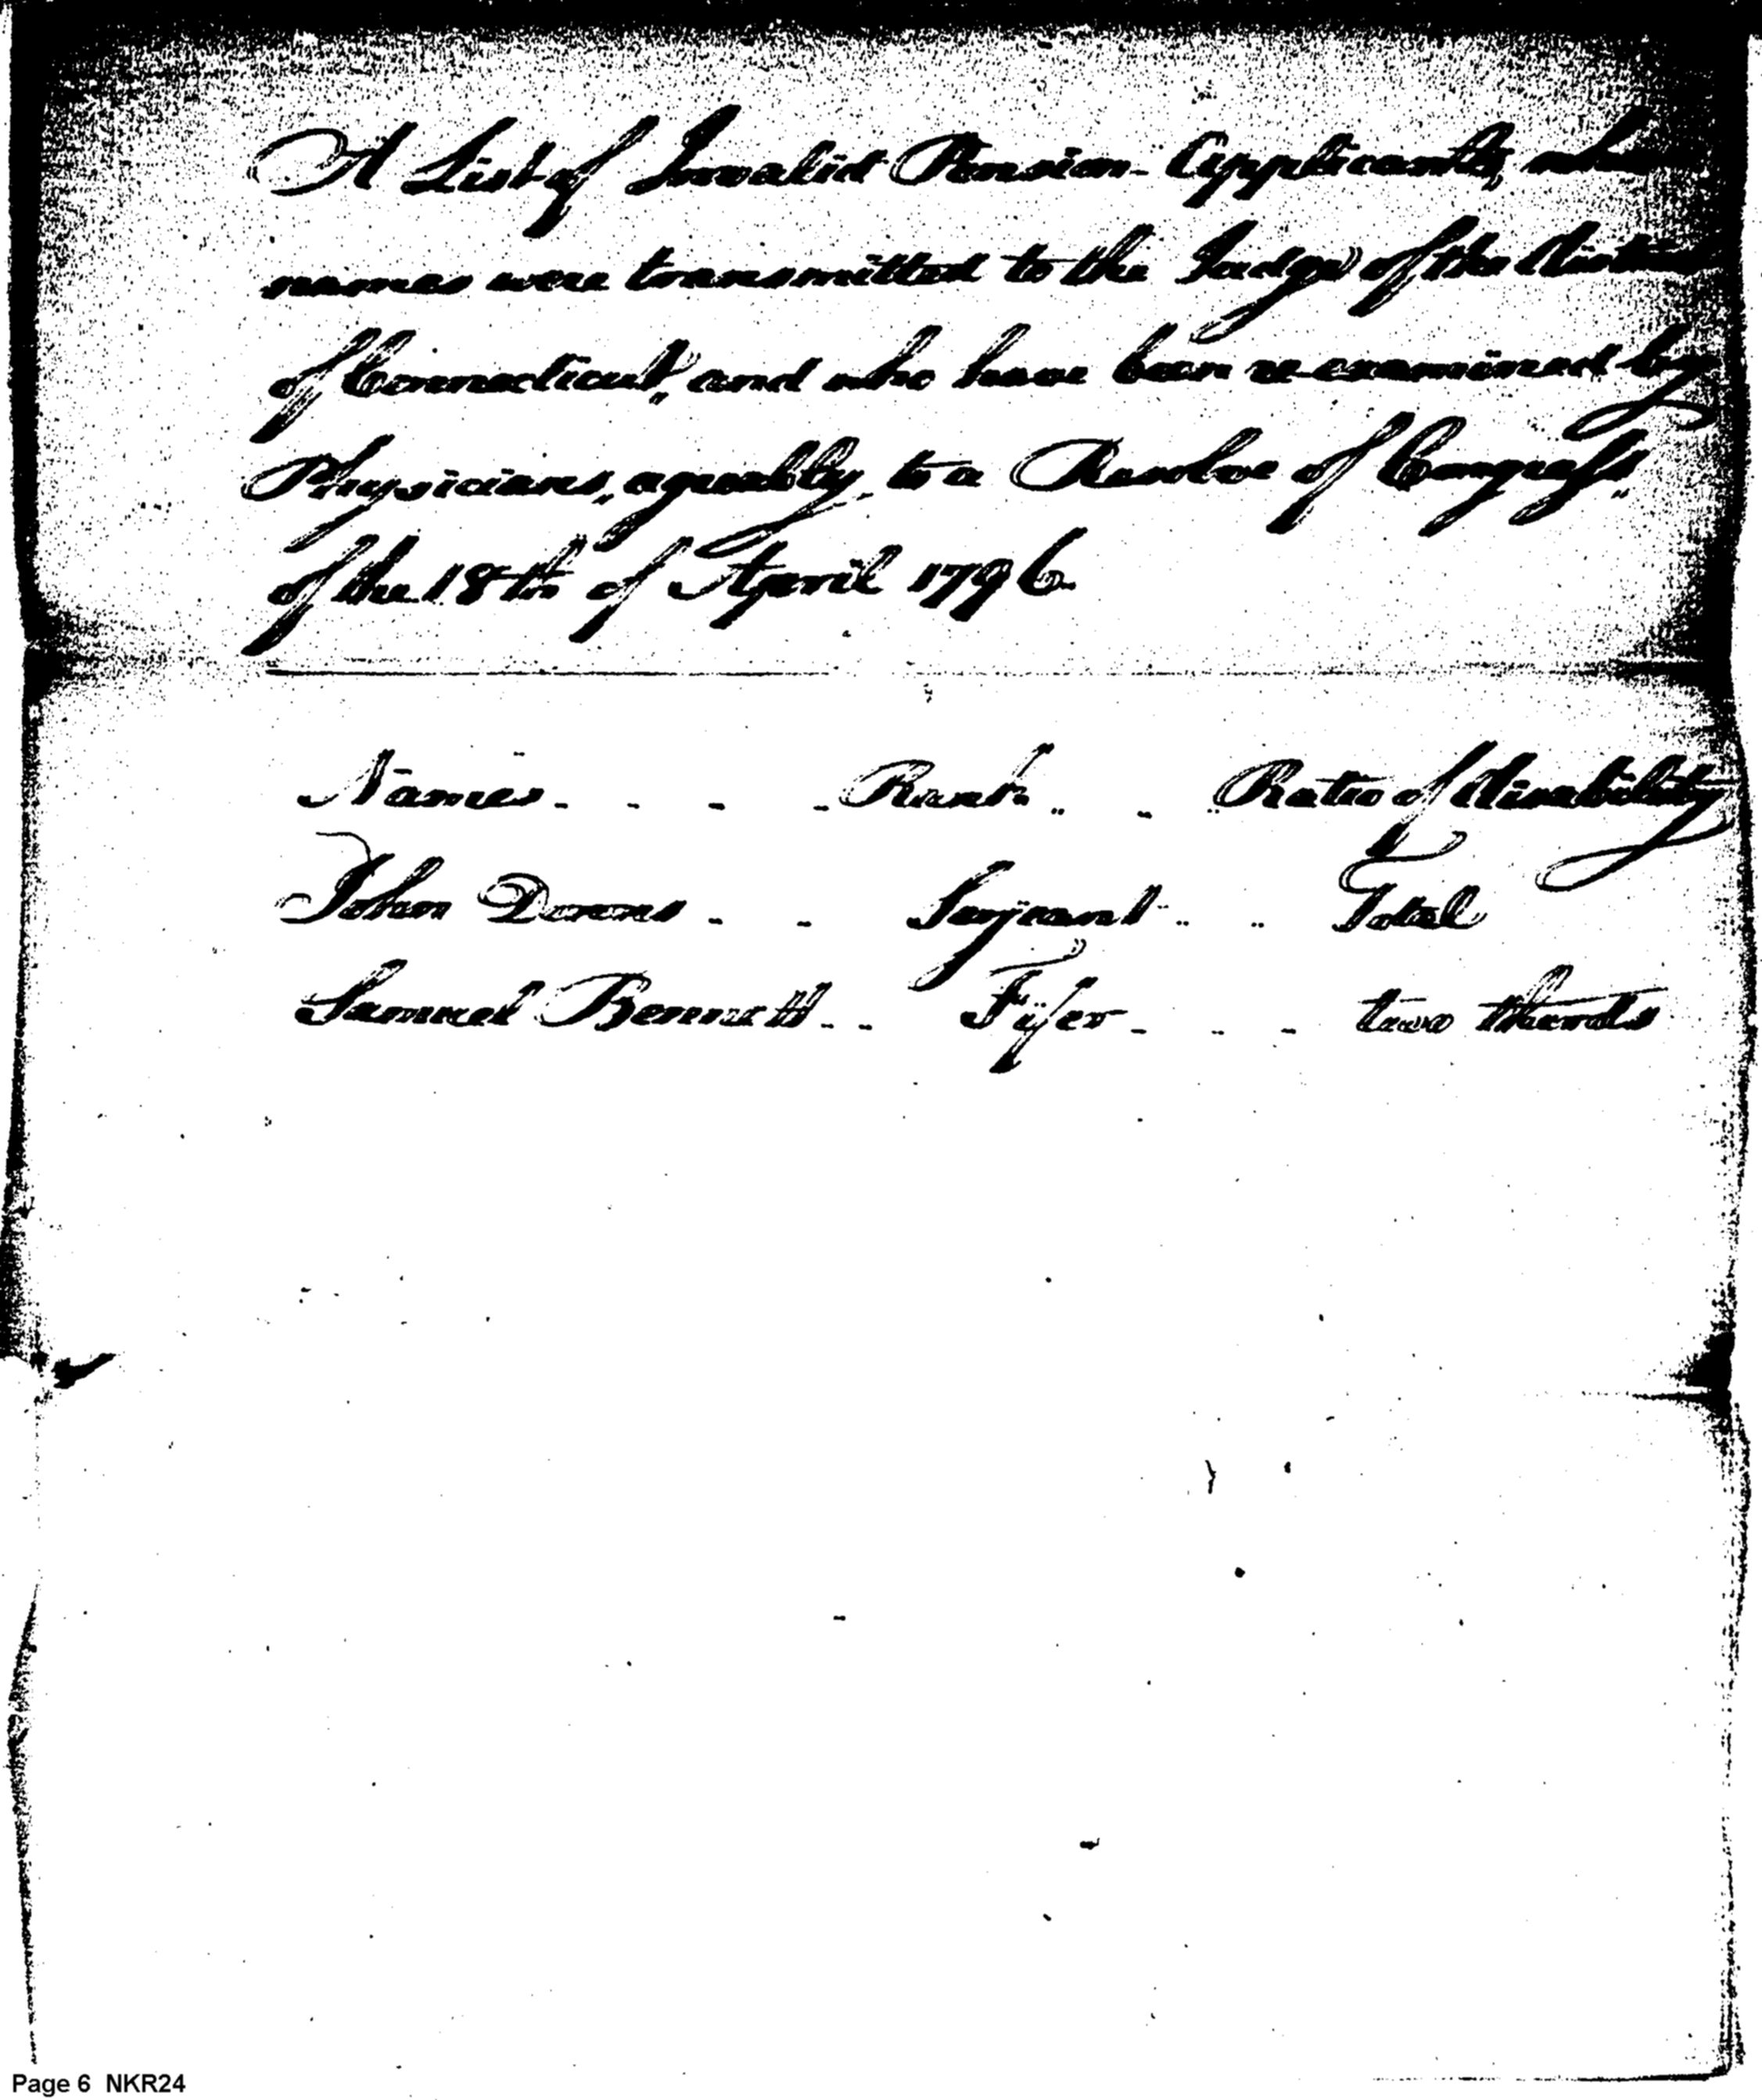 A List of Invalid Pension Applicants, whose
names were transmitted to the Judge of the District
of Connecticut, and who have been re-examined by
Physicians, agreeably to a Resolve of Congress
of the 18th of April 1796
Names - - - - Rank - - Ratio of disability
John Downs - - Serjeant - - Total
Samuel Bennett - - Fifer - - - two thirds
Page 6 NKR24